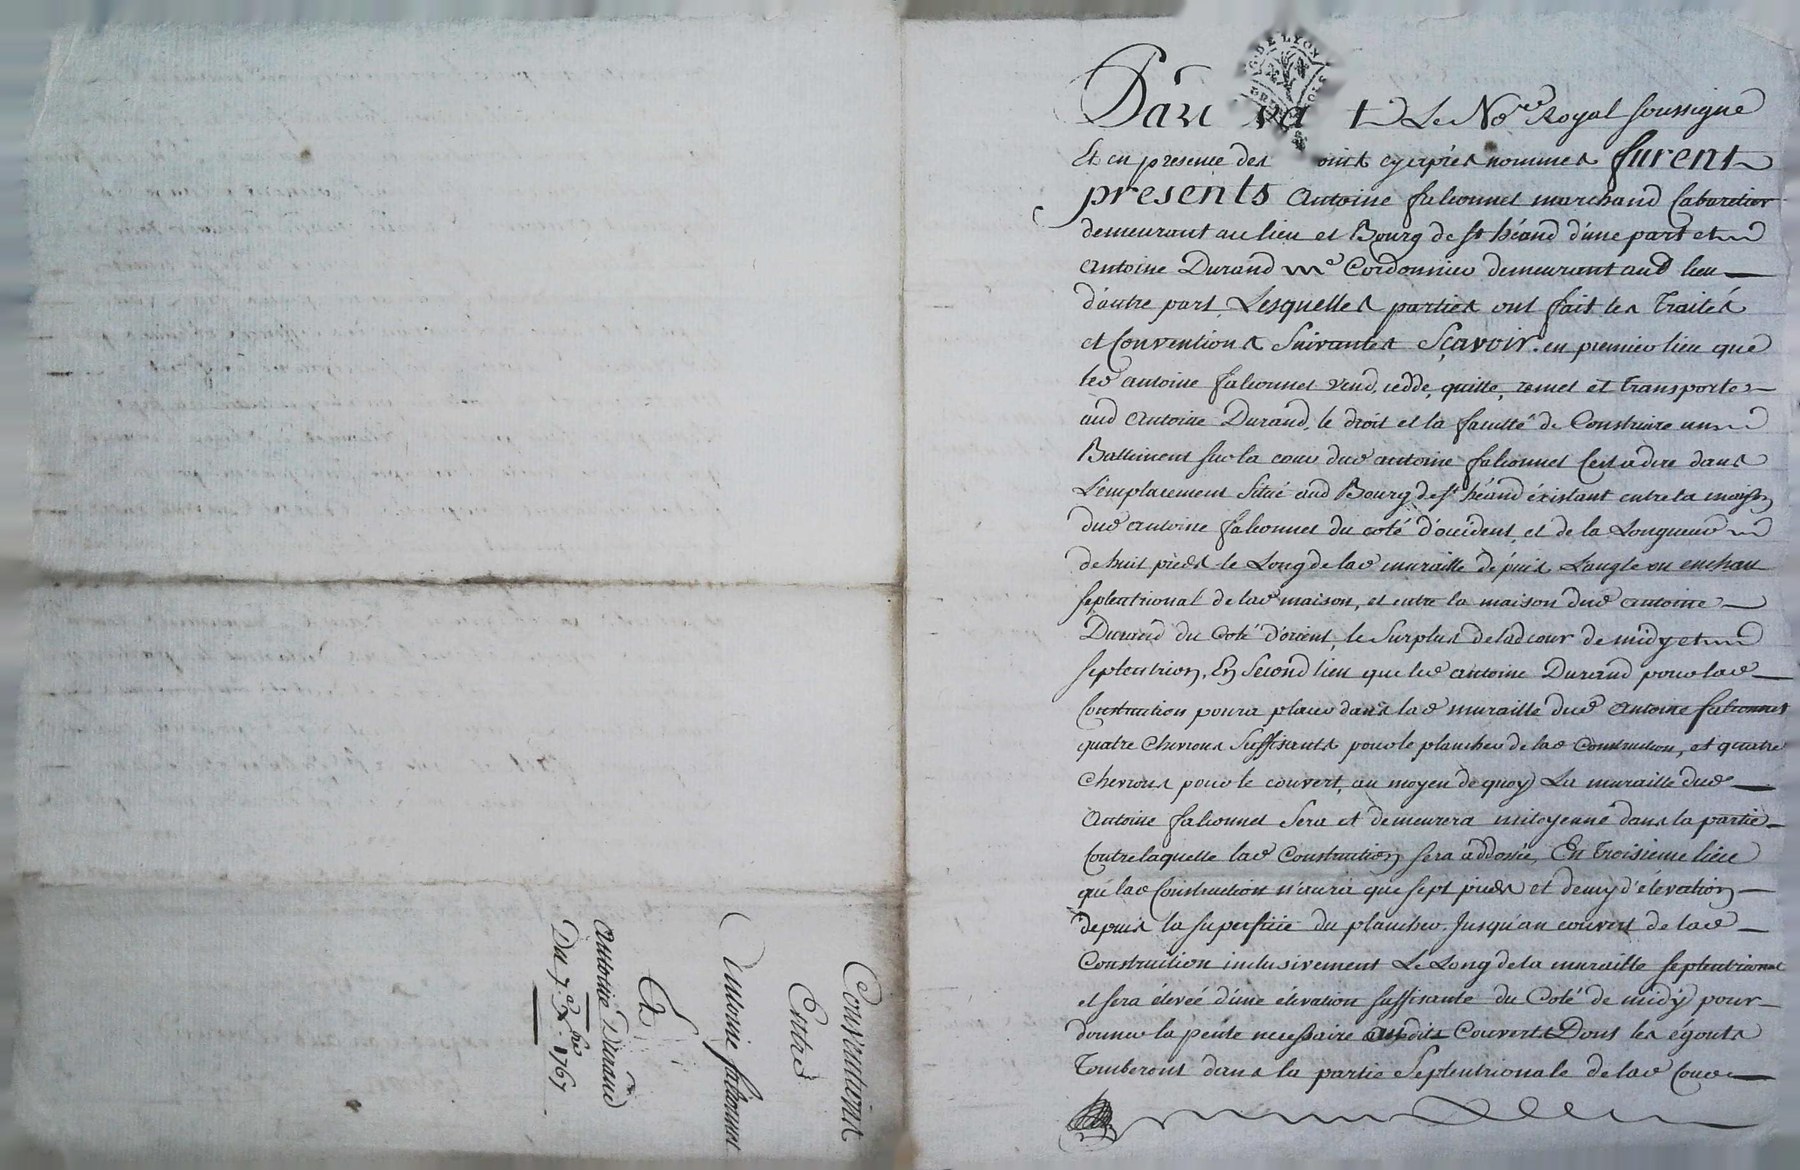 Conventions
Entre
Antoine falconnet
Et
Antoine Durand
Du 7e xbre 1767
DE LYON
Parde va t Le Nore Royal soussigné
Et en presence des oins cy après nommés furent
presents Antoine falconnet marchand Cabaretier
demeurant au lieu et Bourg de st héand d'une part et
Antoine Durand me Cordonnier demeurant aud lieu
d'autre part, Lesquelles parties ont fait les Traités
et Conventions Suivantes Sçavoir. en premier lieu que
led antoine falconnet vend, cedde, quitte, remet et transporte
aud Antoine Durand, le droit et la faculté de Construire un
Battiment sur la cour dud antoine falconnet C'est a dire dans
L'emplacement Situé aud Bourg de st héand éxistant entre la maison
dud antoine falconnet du coté d'occident, et de la Longueur
de huit pieds le Long de lad muraille dépuis L'angle ou enchau
septentrional de lad maison, et entre la maison dud antoine
Durand du Coté d'orient, le Surplus de lad cour de midy et
septentrion, En Second lieu que led antoine Durand pour lad
Construction poura placer dans lad muraille dud Antoine falconnet
quatre Chevrons Suffisants pour le plancher de lad Construction, et quatre
Chevrons pour le couvert, au moyen de quoy La muraille dud
Antoine falconnet Sera et demeurera mitoyenne dans la partie
Contre laquelle lad Construction sera addossée, En Troisieme lieu
que lad Construction n'aura que sept pieds et demy d'élevation
depuis la superficie du plancher Jusqu'au couvert de lad
Construction inclusivement Le Long de la muraille septentrional
et sera élevée d'une élevation suffisante du Coté de midy pour
donner la pente necessaire audits Couverts Dont les égouts
Tomberont dans la partie Septentrionale de lad Cour